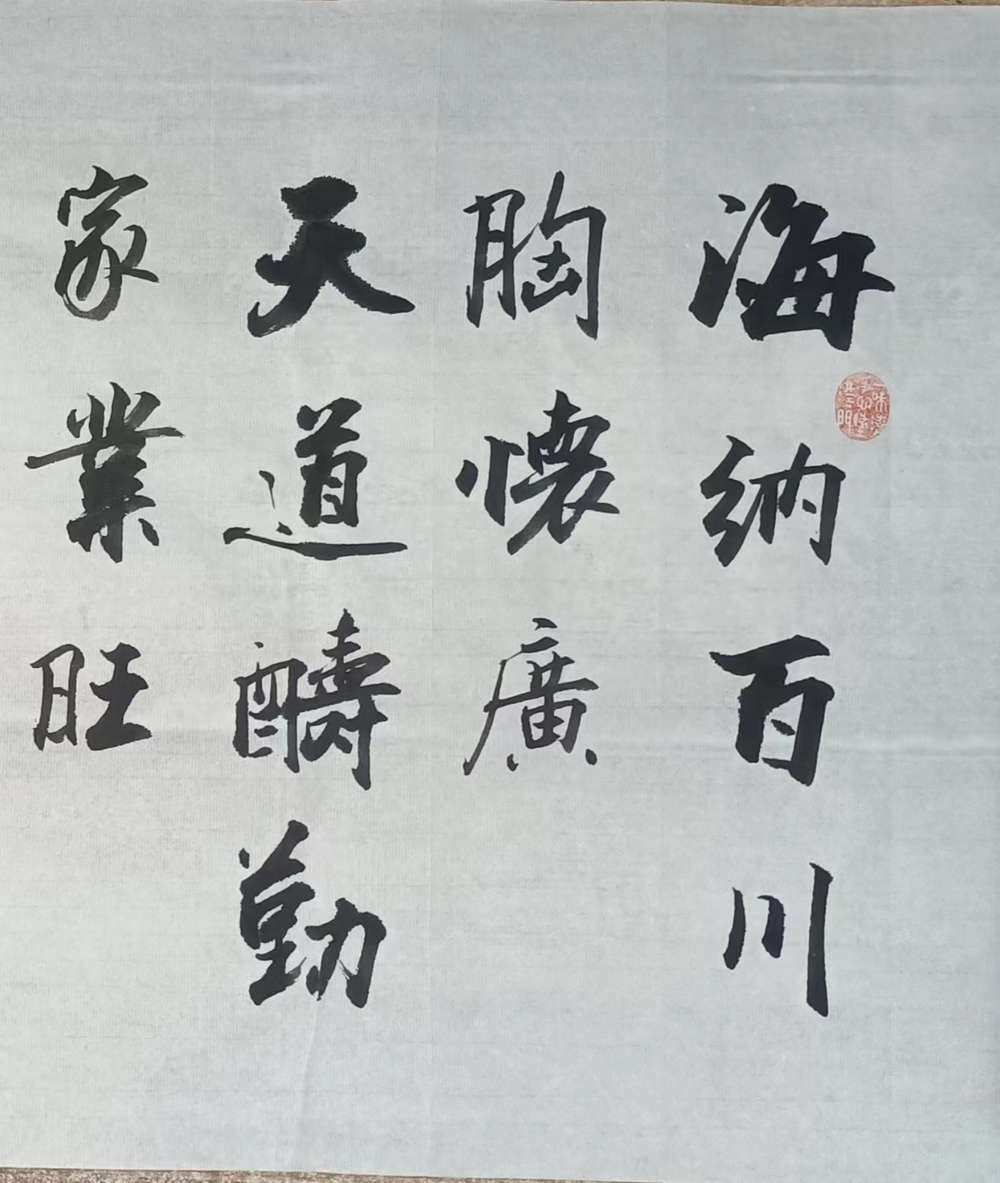 海納百川
胸懷廣
天道酬勤
家業旺